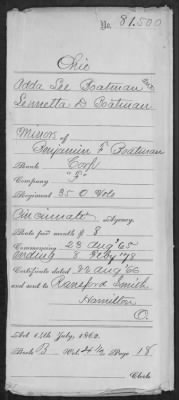 No. 81.500
Ohio
Adda Lee Boatman &c
Lennetta D Boatman
Minors of
Benjamin F Boatman
Rank Corp
Company "F"
Regiment 35 O Vols
Cincinnati Agency.
Rate per month $ 8
Commencing 23 Aug '65
Ending 8 Feby '78
Certificate dated Aug '66
and sent to Ransford Smith
Hamilton
O
Act 14th July, 1862.
Book B Vol. 4 ½ Page 18
Clerk